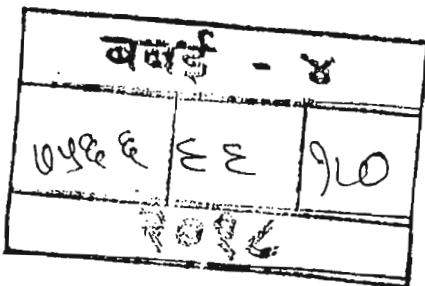 बबई - ४
७५६६ ६६ १८०
२०१८